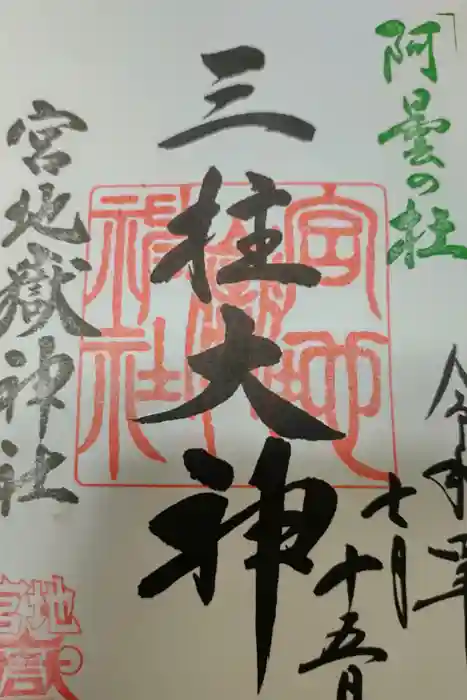 阿曇の杜
令和四年
七月
十五日
三柱大神
宮地嶽神社
宮地嶽神社